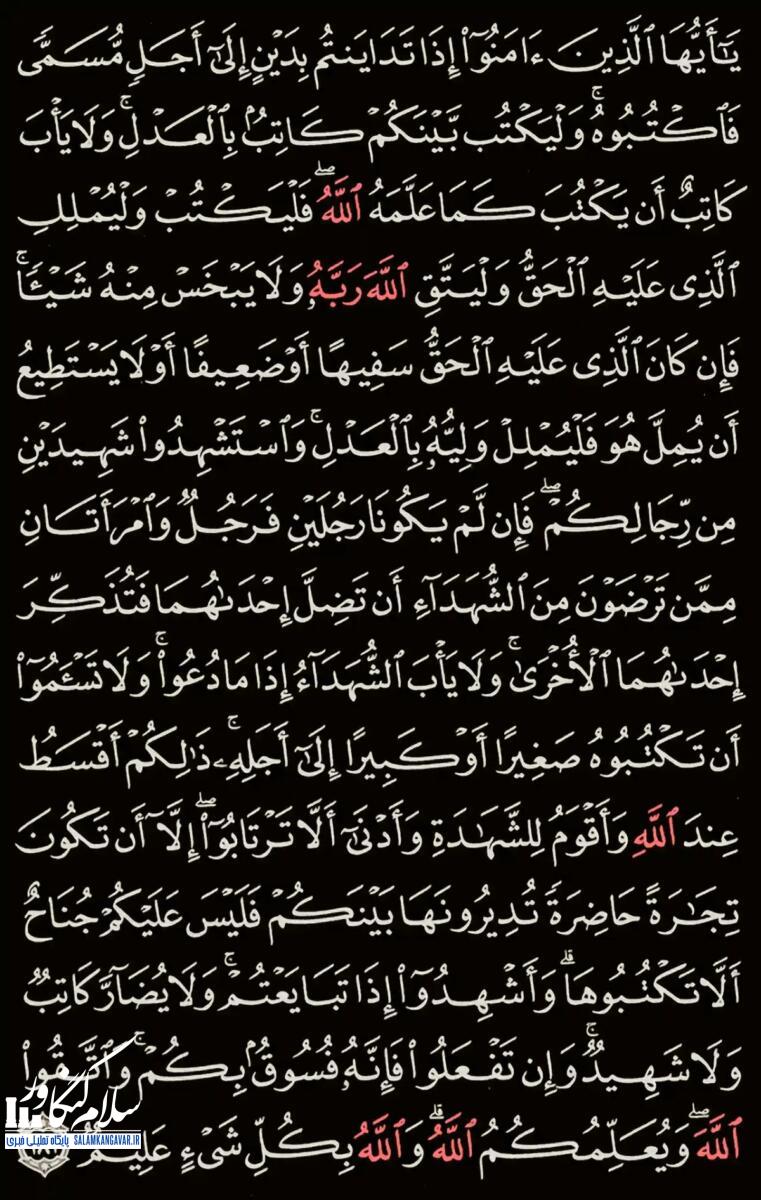 يَـٰٓأَيُّهَا ٱلَّذِينَ ءَامَنُوٓا۟ إِذَا تَدَايَنتُم بِدَيْنٍ إِلَىٰٓ أَجَلٍ مُّسَمًّى
فَٱكْتُبُوهُ ۚ وَلْيَكْتُب بَّيْنَكُمْ كَاتِبٌۢ بِٱلْعَدْلِ ۚ وَلَا يَأْبَ
كَاتِبٌ أَن يَكْتُبَ كَمَا عَلَّمَهُ ٱللَّهُ ۖ فَلْيَكْتُبْ وَلْيُمْلِلِ
ٱلَّذِى عَلَيْهِ ٱلْحَقُّ وَلْيَتَّقِ ٱللَّهَ رَبَّهُۥ وَلَا يَبْخَسْ مِنْهُ شَيْـًٔا ۚ
فَإِن كَانَ ٱلَّذِى عَلَيْهِ ٱلْحَقُّ سَفِيهًا أَوْ ضَعِيفًا أَوْ لَا يَسْتَطِيعُ
أَن يُمِلَّ هُوَ فَلْيُمْلِلْ وَلِيُّهُۥ بِٱلْعَدْلِ ۚ وَٱسْتَشْهِدُوا۟ شَهِيدَيْنِ
مِن رِّجَالِكُمْ ۖ فَإِن لَّمْ يَكُونَا رَجُلَيْنِ فَرَجُلٌ وَٱمْرَأَتَانِ
مِمَّن تَرْضَوْنَ مِنَ ٱلشُّهَدَآءِ أَن تَضِلَّ إِحْدَىٰهُمَا فَتُذَكِّرَ
إِحْدَىٰهُمَا ٱلْأُخْرَىٰ ۚ وَلَا يَأْبَ ٱلشُّهَدَآءُ إِذَا مَا دُعُوا۟ ۚ وَلَا تَسْـَٔمُوٓا۟
أَن تَكْتُبُوهُ صَغِيرًا أَوْ كَبِيرًا إِلَىٰٓ أَجَلِهِۦ ۚ ذَٰلِكُمْ أَقْسَطُ
عِندَ ٱللَّهِ وَأَقْوَمُ لِلشَّهَـٰدَةِ وَأَدْنَىٰٓ أَلَّا تَرْتَابُوٓا۟ ۖ إِلَّآ أَن تَكُونَ
تِجَـٰرَةً حَاضِرَةً تُدِيرُونَهَا بَيْنَكُمْ فَلَيْسَ عَلَيْكُمْ جُنَاحٌ
أَلَّا تَكْتُبُوهَا ۗ وَأَشْهِدُوٓا۟ إِذَا تَبَايَعْتُمْ ۚ وَلَا يُضَآرَّ كَاتِبٌ
وَلَا شَهِيدٌ ۚ وَإِن تَفْعَلُوا۟ فَإِنَّهُۥ فُسُوقٌۢ بِكُمْ ۗ وَٱتَّقُوا۟
ٱللَّهَ ۖ وَيُعَلِّمُكُمُ ٱللَّهُ ۗ وَٱللَّهُ بِكُلِّ شَىْءٍ عَلِيمٌ
سلام کنگاور
پایگاه تحلیلی خبری SALAMKANGAVAR.IR